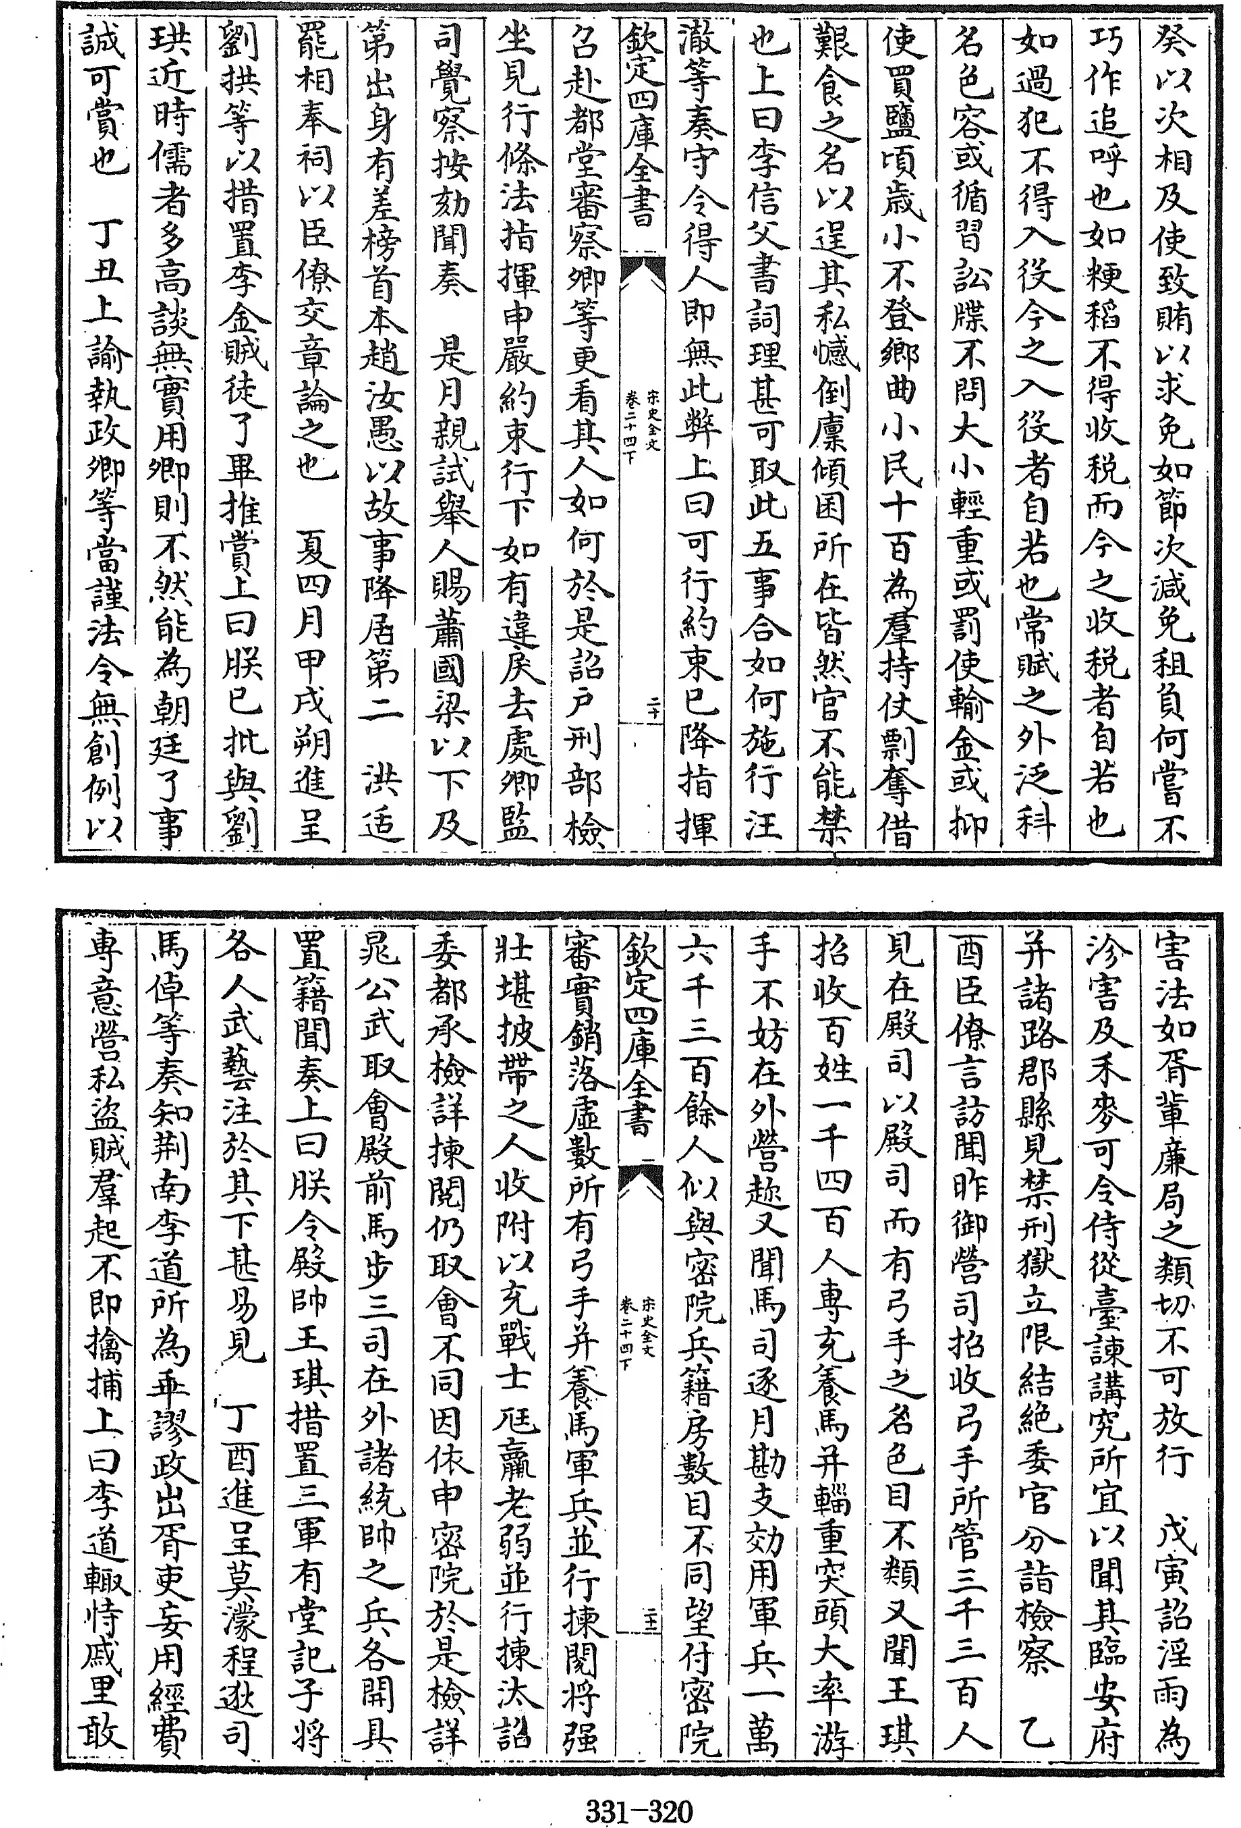 癸以次相及使致賄以求免如節次減免租負何嘗不
巧作追呼也如粳稻不得收稅而今之收稅者自若也
如過犯不得入役今之入役者自若也常賦之外泛科
名色容或循習訟牒不問大小輕重或罰使輸金或抑
使買鹽頃歲小不登鄉曲小民十百為羣持仗剽奪借
艱食之名以逞其私憾倒廩傾囷所在皆然官不能禁
也上曰李信父書詞理甚可取此五事合如何施行汪
澈等奏守令得人即無此弊上曰可行約束已降指揮
欽定四庫全書
宋史全文
卷二十四下
二十
召赴都堂審察卿等更看其人如何於是詔戶刑部檢
坐見行條法指揮申嚴約束行下如有違戾去處卿監
司覺察按劾聞奏 是月親試舉人賜蕭國梁以下及
第出身有差榜首本趙汝愚以故事降居第二 洪适
罷相奉祠以臣僚交章論之也 夏四月甲戌朔進呈
劉拱等以措置李金賊徒了畢推賞上曰朕已批與劉
珙近時儒者多高談無實用卿則不然能為朝廷了事
誠可賞也 丁丑上諭執政卿等當謹法令無創例以
害法如胥輩廉局之類切不可放行 戊寅詔淫雨為
沴害及禾麥可令侍從臺諫講究所宜以聞其臨安府
并諸路郡縣見禁刑獄立限結絕委官分詣檢察 乙
酉臣僚言訪聞昨御營司招收弓手所管三千三百人
見在殿司以殿司而有弓手之名色目不類又聞王琪
招收百姓一千四百人專充養馬并輜重突頭大率游
手不妨在外營趂又聞馬司逐月勘支効用軍兵一萬
六千三百餘人似與密院兵籍房數目不同望付密院
欽定四庫全書
宋史全文
卷二十四下
二十一
審實銷落虛數所有弓手并養馬軍兵並行揀閱將强
壯堪披帶之人收附以充戰士尫羸老弱並行揀汰詔
委都承檢詳揀閱仍取會不同因依申密院於是檢詳
晁公武取會殿前馬步三司在外諸統帥之兵各開具
置籍聞奏上曰朕令殿帥王琪措置三軍有堂記子將
各人武藝注於其下甚易見 丁酉進呈莫濛程逖司
馬倬等奏知荆南李道所為乖謬政出胥吏妄用經費
專意營私盜賊羣起不即擒捕上曰李道輙恃戚里敢
331-320